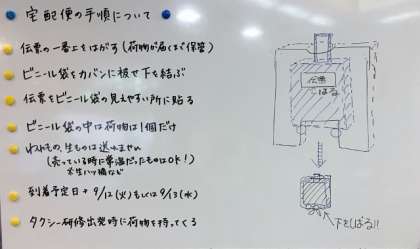 宅配便の手順について
伝票の一番上をはがす(荷物が届くまで保管)
ビニール袋をカバンに被せ下を結ぶ
伝票をビニール袋の見えやすい所に貼る
ビニール袋の中は荷物は1個だけ
われもの、生ものは送れません
(売っている時に常温だったものはOK!)
※生八ツ橋など
到着予定日→9/12(火)もしくは9/13(水)
タクシー研修出発時に荷物を持ってくる
伝票
はる
下をしばる!!